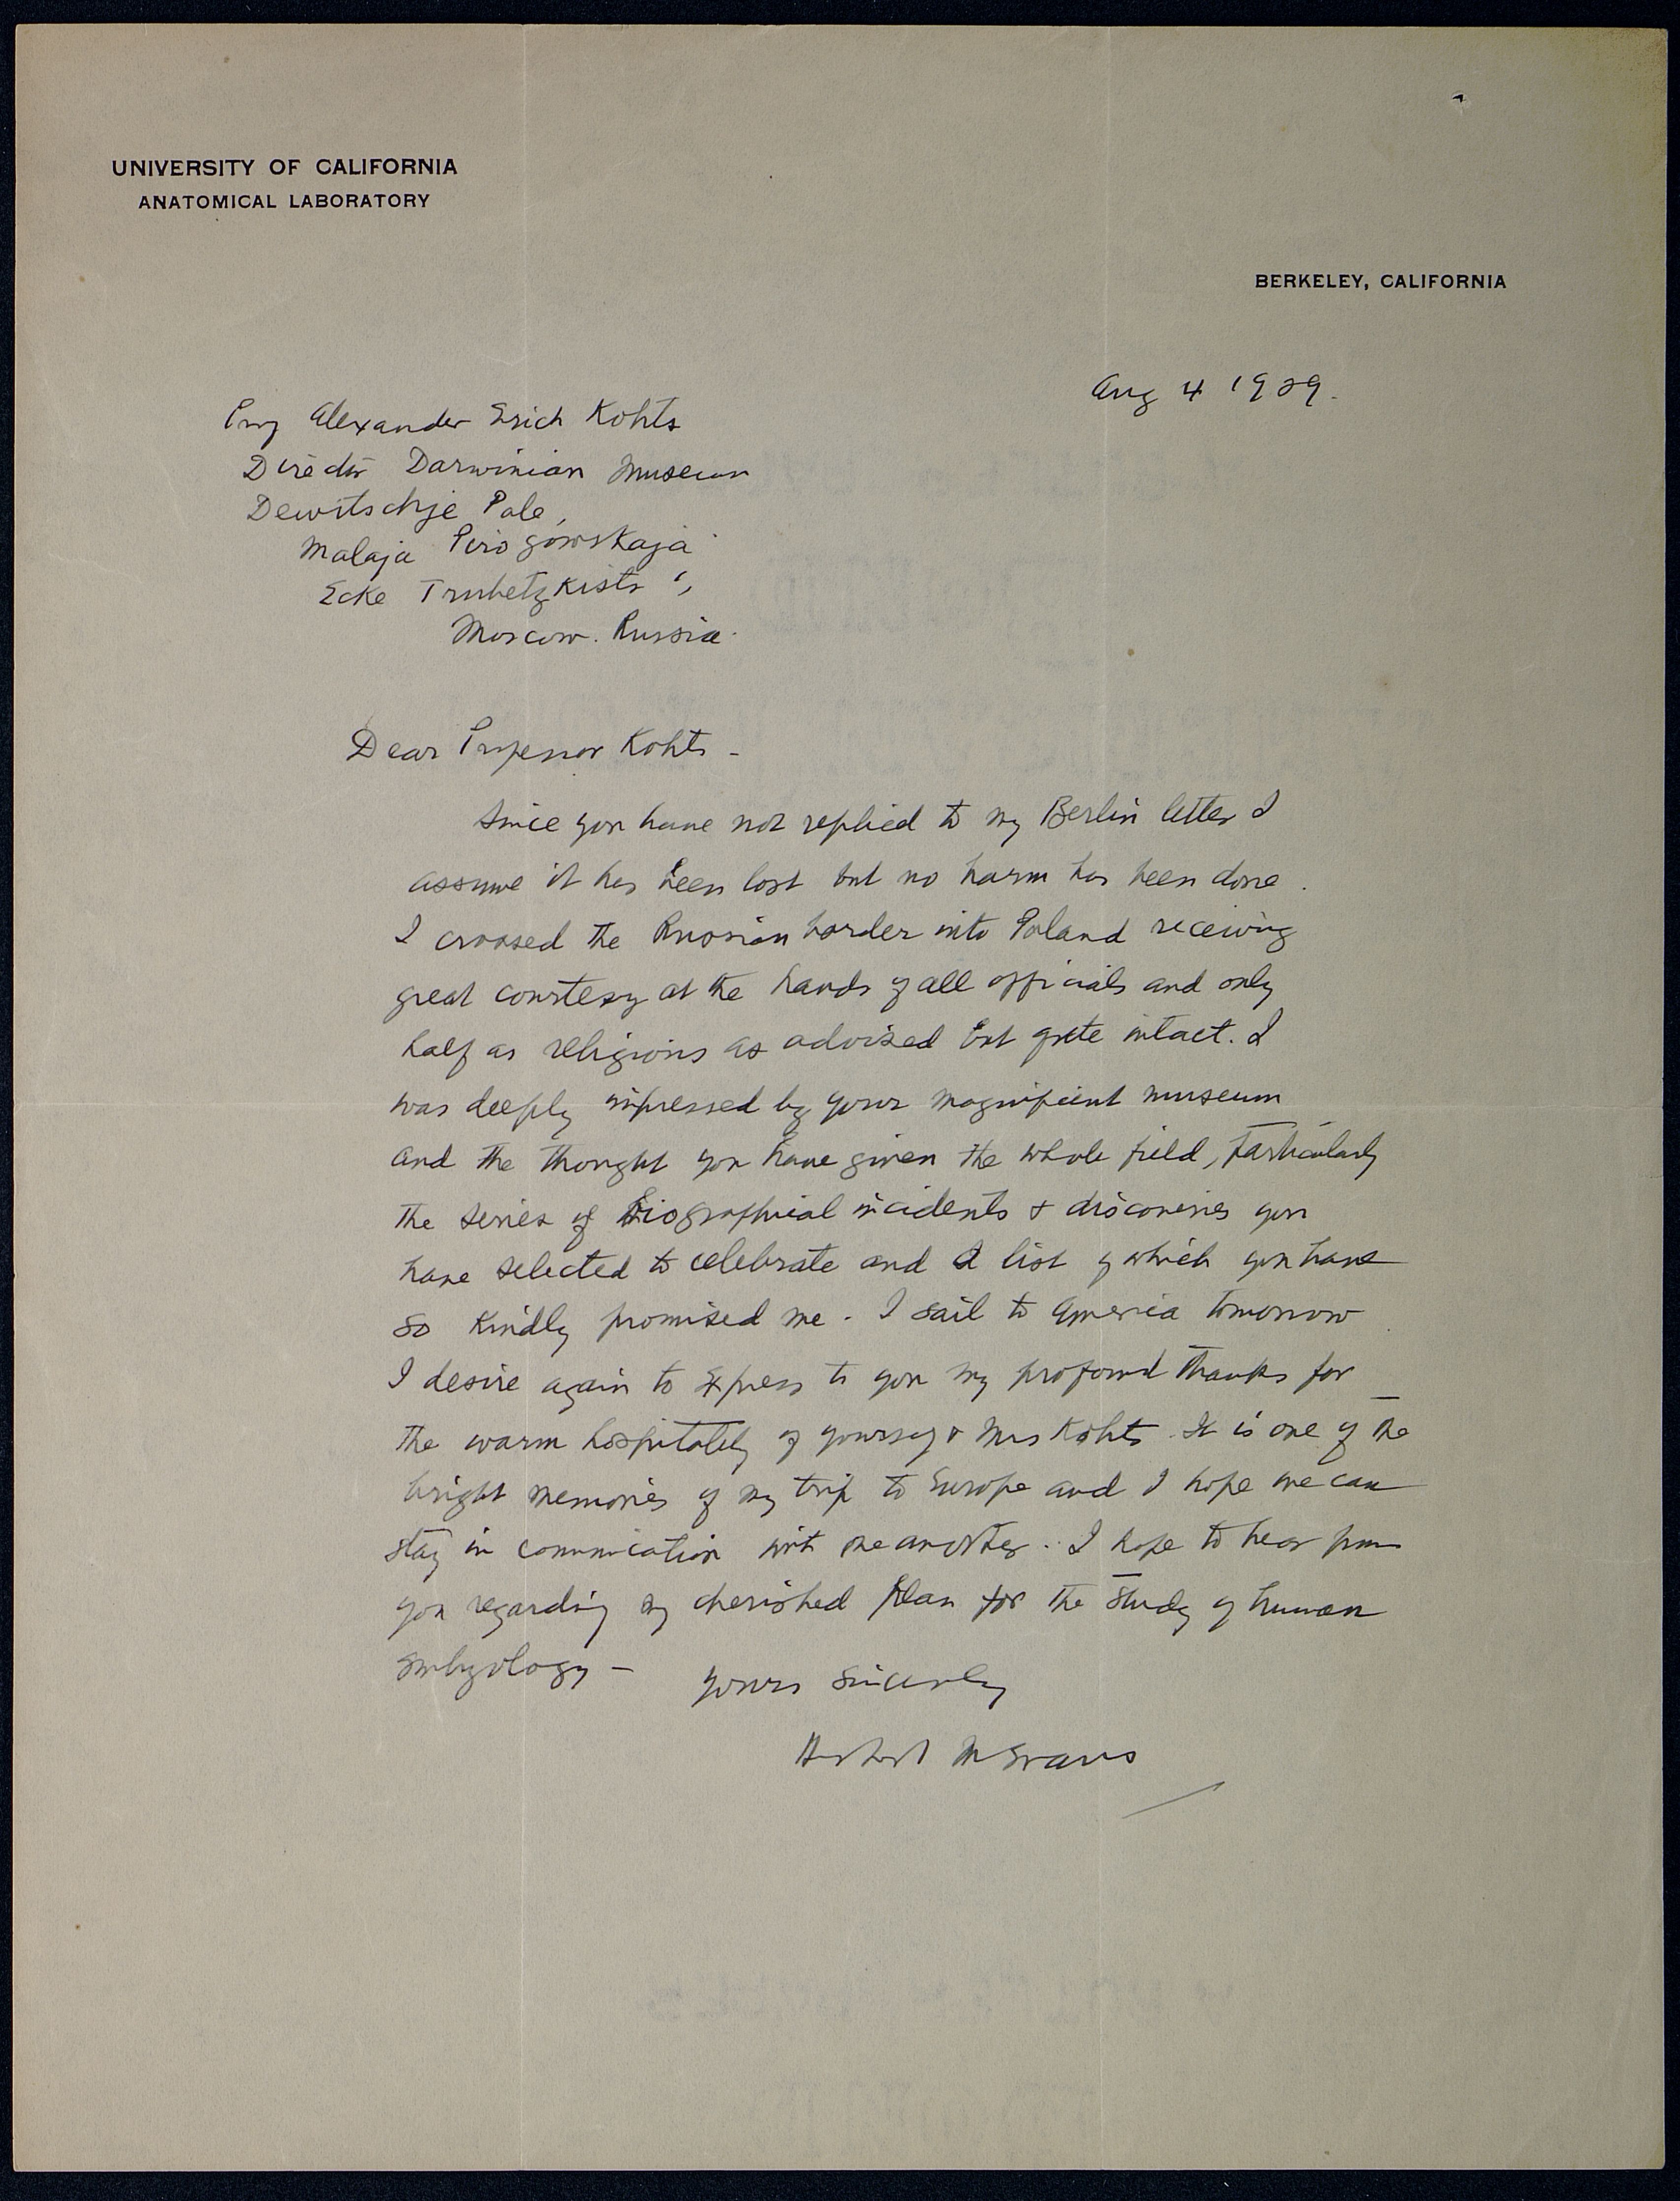 UNIVERSITY OF CALIFORNIA
ANATOMICAL LABORATORY
BERKELEY, CALIFORNIA
Aug 4 1929.
Prof Alexander Erich Kohts
Director Darwinian Museum
Dewitschje Pole,
Malaja Pirogowskaja
Ecke Trubetzkista
Moscow. Russia.
Dear Professor Kohts -
Since you have not replied to my Berlin letter I
assume it has been lost but no harm has been done.
I crossed the Russian border into Poland receiving
great courtesy at the hands of all officials and only
half as religious as advised but quite intact. I
was deeply impressed by your magnificent museum
and the thought you have given the whole field, particularly
the series of biographical incidents & discoveries you
have selected to celebrate and a list of which you have
so kindly promised me. I sail to America tomorrow
I desire again to express to you my profound thanks for
the warm hospitality of yourself & Mrs Kohts. It is one of the
bright memories of my trip to Europe and I hope we can
stay in communication with one another. I hope to hear from
you regarding my cherished plan for the study of human
embryology - Yours Sincerely
Herbert M Evans